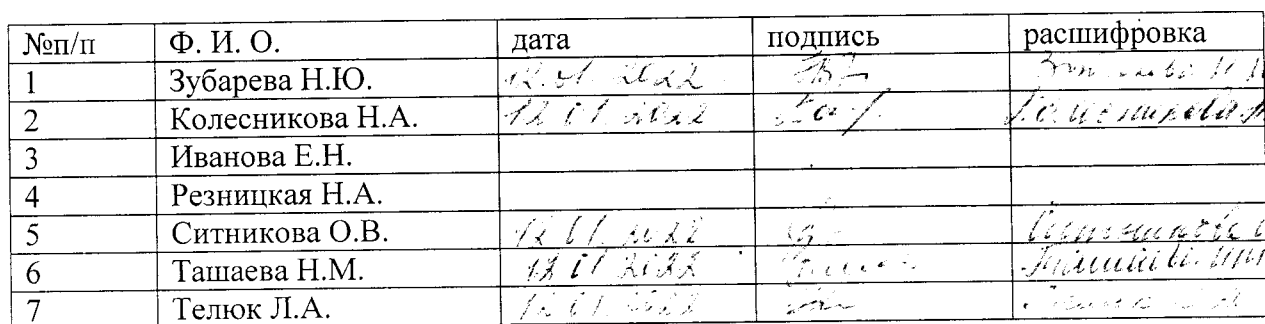 №п/п Ф. И. О. дата подпись расшифровка
1 Зубарева Н.Ю. 12.01.2022
2 Колесникова Н.А. 12 01 2022 Колесникова Н
3 Иванова Е.Н.
4 Резницкая Н.А.
5 Ситникова О.В. 12 01 2022 Ситникова О
6 Ташаева Н.М. 12 01 2022
7 Телюк Л.А. 12 01 2022